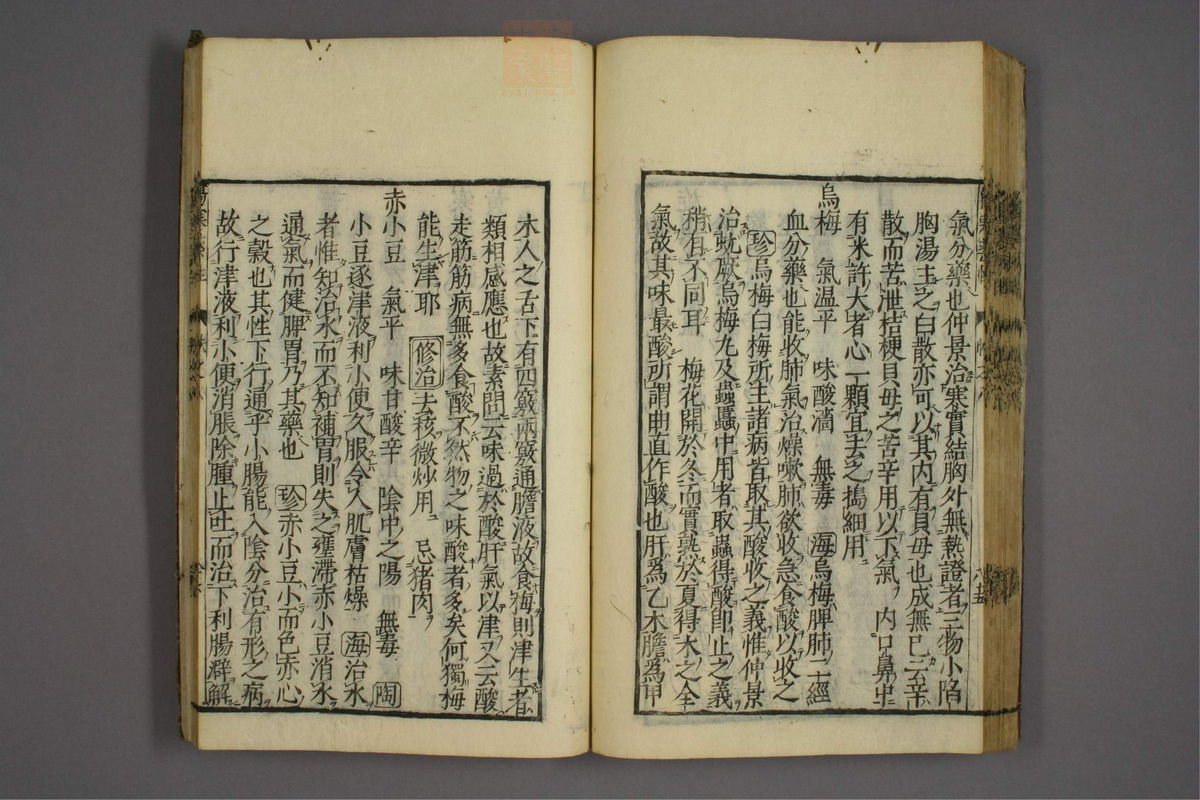 氣分藥也仲景治寒實結胸外無熱證者三物小陷
胸湯主之白散亦可以其內有貝母也成無已云辛
散而苦泄桔梗貝母之苦辛用以下氣 內口鼻中
有米許大者心一顆宜去之搗細用
烏梅 氣溫平 味酸濇 無毒 海烏梅脾肺二經
血分藥也能收肺氣治燥嗽肺欲收急食酸以收之
珍烏梅白梅所主諸病皆取其酸收之義惟仲景
治蚘厥烏梅丸及蟲䘌中用者取蟲得酸即止之義
稍有不同耳 梅花開於冬而實熟於夏得木之全
氣故其味最酸所謂曲直作酸也肝爲乙木膽爲甲
木人之舌下有四竅兩竅通膽液故食梅則津生者
類相感應也故素問云味過於酸肝氣以津又云酸
走筋筋病無多食酸不然物之味酸者多矣何獨梅
能生津耶 修治去核微炒用 忌猪肉
赤小豆 氣平 味甘酸辛 陰中之陽 無毒 陶
小豆逐津液利小便久服令人肌膚枯燥 海治水
者惟知治水而不知補胃則失之壅滯赤小豆消水
通氣而健脾胃乃其藥也 珍赤小豆小而色赤心
之穀也其性下行通乎小腸能入陰分治有形之病
故行津液利小便消脹除腫止吐而治下利腸澼解